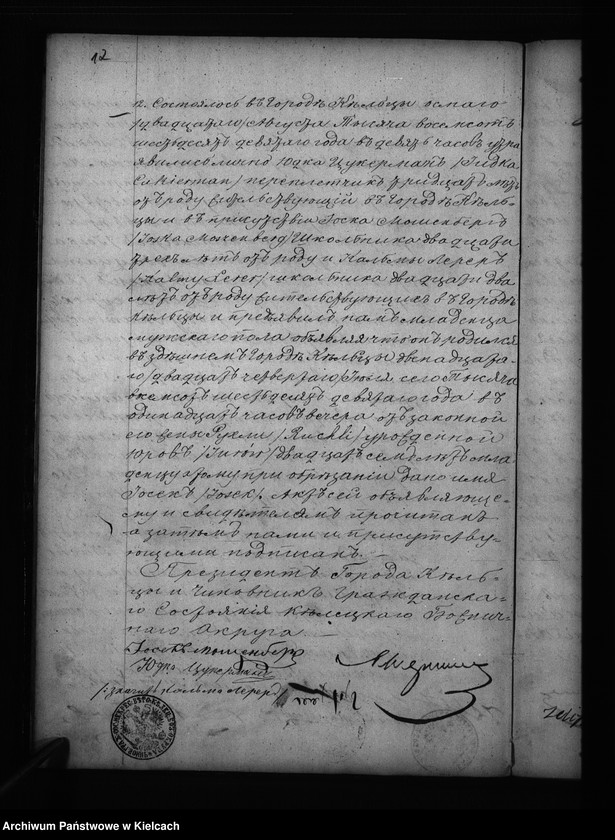 12
2. Состоялось въ Городѣ Кѣльцы осмаго
/двадцатаго/ Августа Тысяча восемсотъ
шестьдесятъ девятаго года въ девять часовъ утра
явился лично Юдка Цукерманъ /Judka
Cukierman/ переплетчикъ тридцать лѣтъ
отъ роду жительствующій въ Городѣ Кѣль-
цы и въ присутствіи Іоска Мошенбергъ
/Joska Moszenberg/ Школьника двадцати
трехъ лѣтъ отъ роду и Кальмы Лереръ
/Kalmy Lerer/ школьника двадцати два
лѣтъ отъ роду жительствующихъ въ Городѣ
Кѣльцы и предъявилъ намъ младенца
мужескаго пола объявляя что онъ родился
въ здѣшнемъ Городѣ Кѣльцы двенадцата-
го /двадцать четвертаго/ сего Тысяча
восемсотъ шестьдесятъ девятаго года въ
одинадцать часовъ вечера отъ законной
его жены Рухли /Ruchli/ урожденной
двадцать семь лѣтъ мла-
денцу этому при обрѣзаніи дано имя
Іосекъ /Josek/. Актъ сей объявляюще-
му и свидѣтелямъ прочитанъ
а затѣмъ нами и присутству-
ющими подписанъ. —
Президентъ Города Кѣль-
цы и Чиновникъ Гражданска-
го Состоянія Кѣлецкаго Божнич-
наго Округа
Іосекъ Мошенбергъ
Юдка Цукерманъ
Кальма Лереръ
Archiwum Państwowe w Kielcach